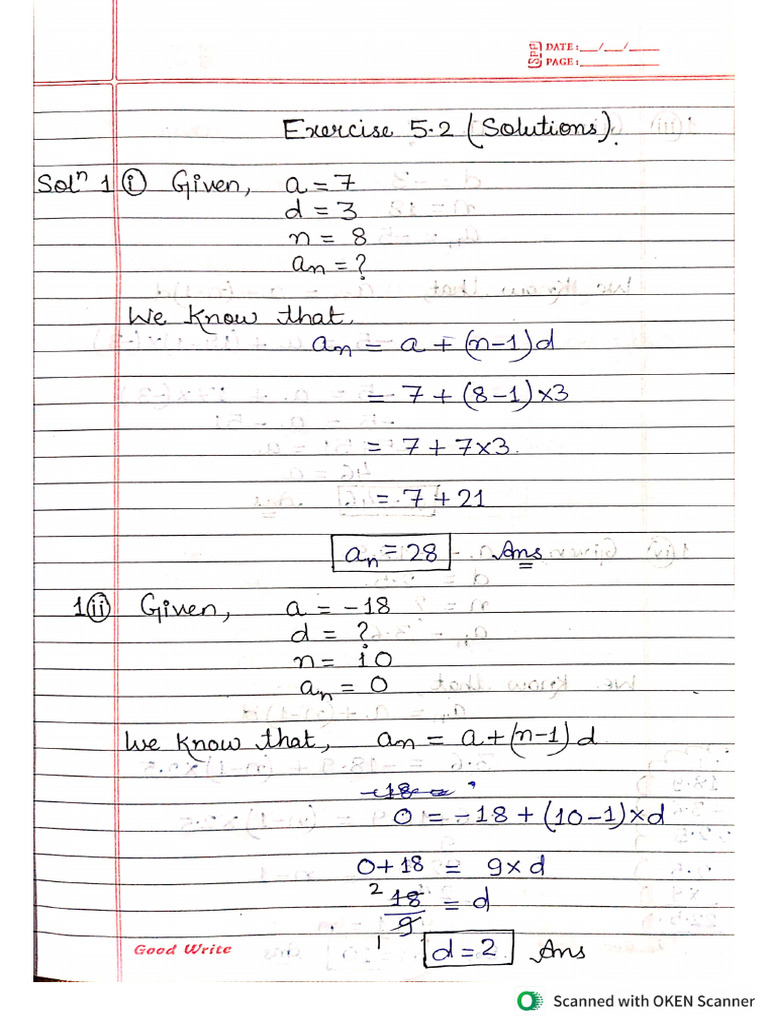 DATE: __/__/____
PAGE: ________
Exercise 5.2 (Solutions).
Solⁿ 1 (i) Given, a = 7
d = 3
n = 8
aₙ = ?
We know that.
aₙ = a + (n-1)d
= 7 + (8-1)×3
= 7 + 7×3.
= 7 + 21
aₙ = 28 Ans
1 (ii) Given, a = -18
d = ?
n = 10
aₙ = 0
We know that, aₙ = a + (n-1)d
-18 =
0 = -18 + (10-1)×d
0+18 = 9×d
2 18/9 1 = d
d = 2 Ans
Good Write
Scanned with OKEN Scanner